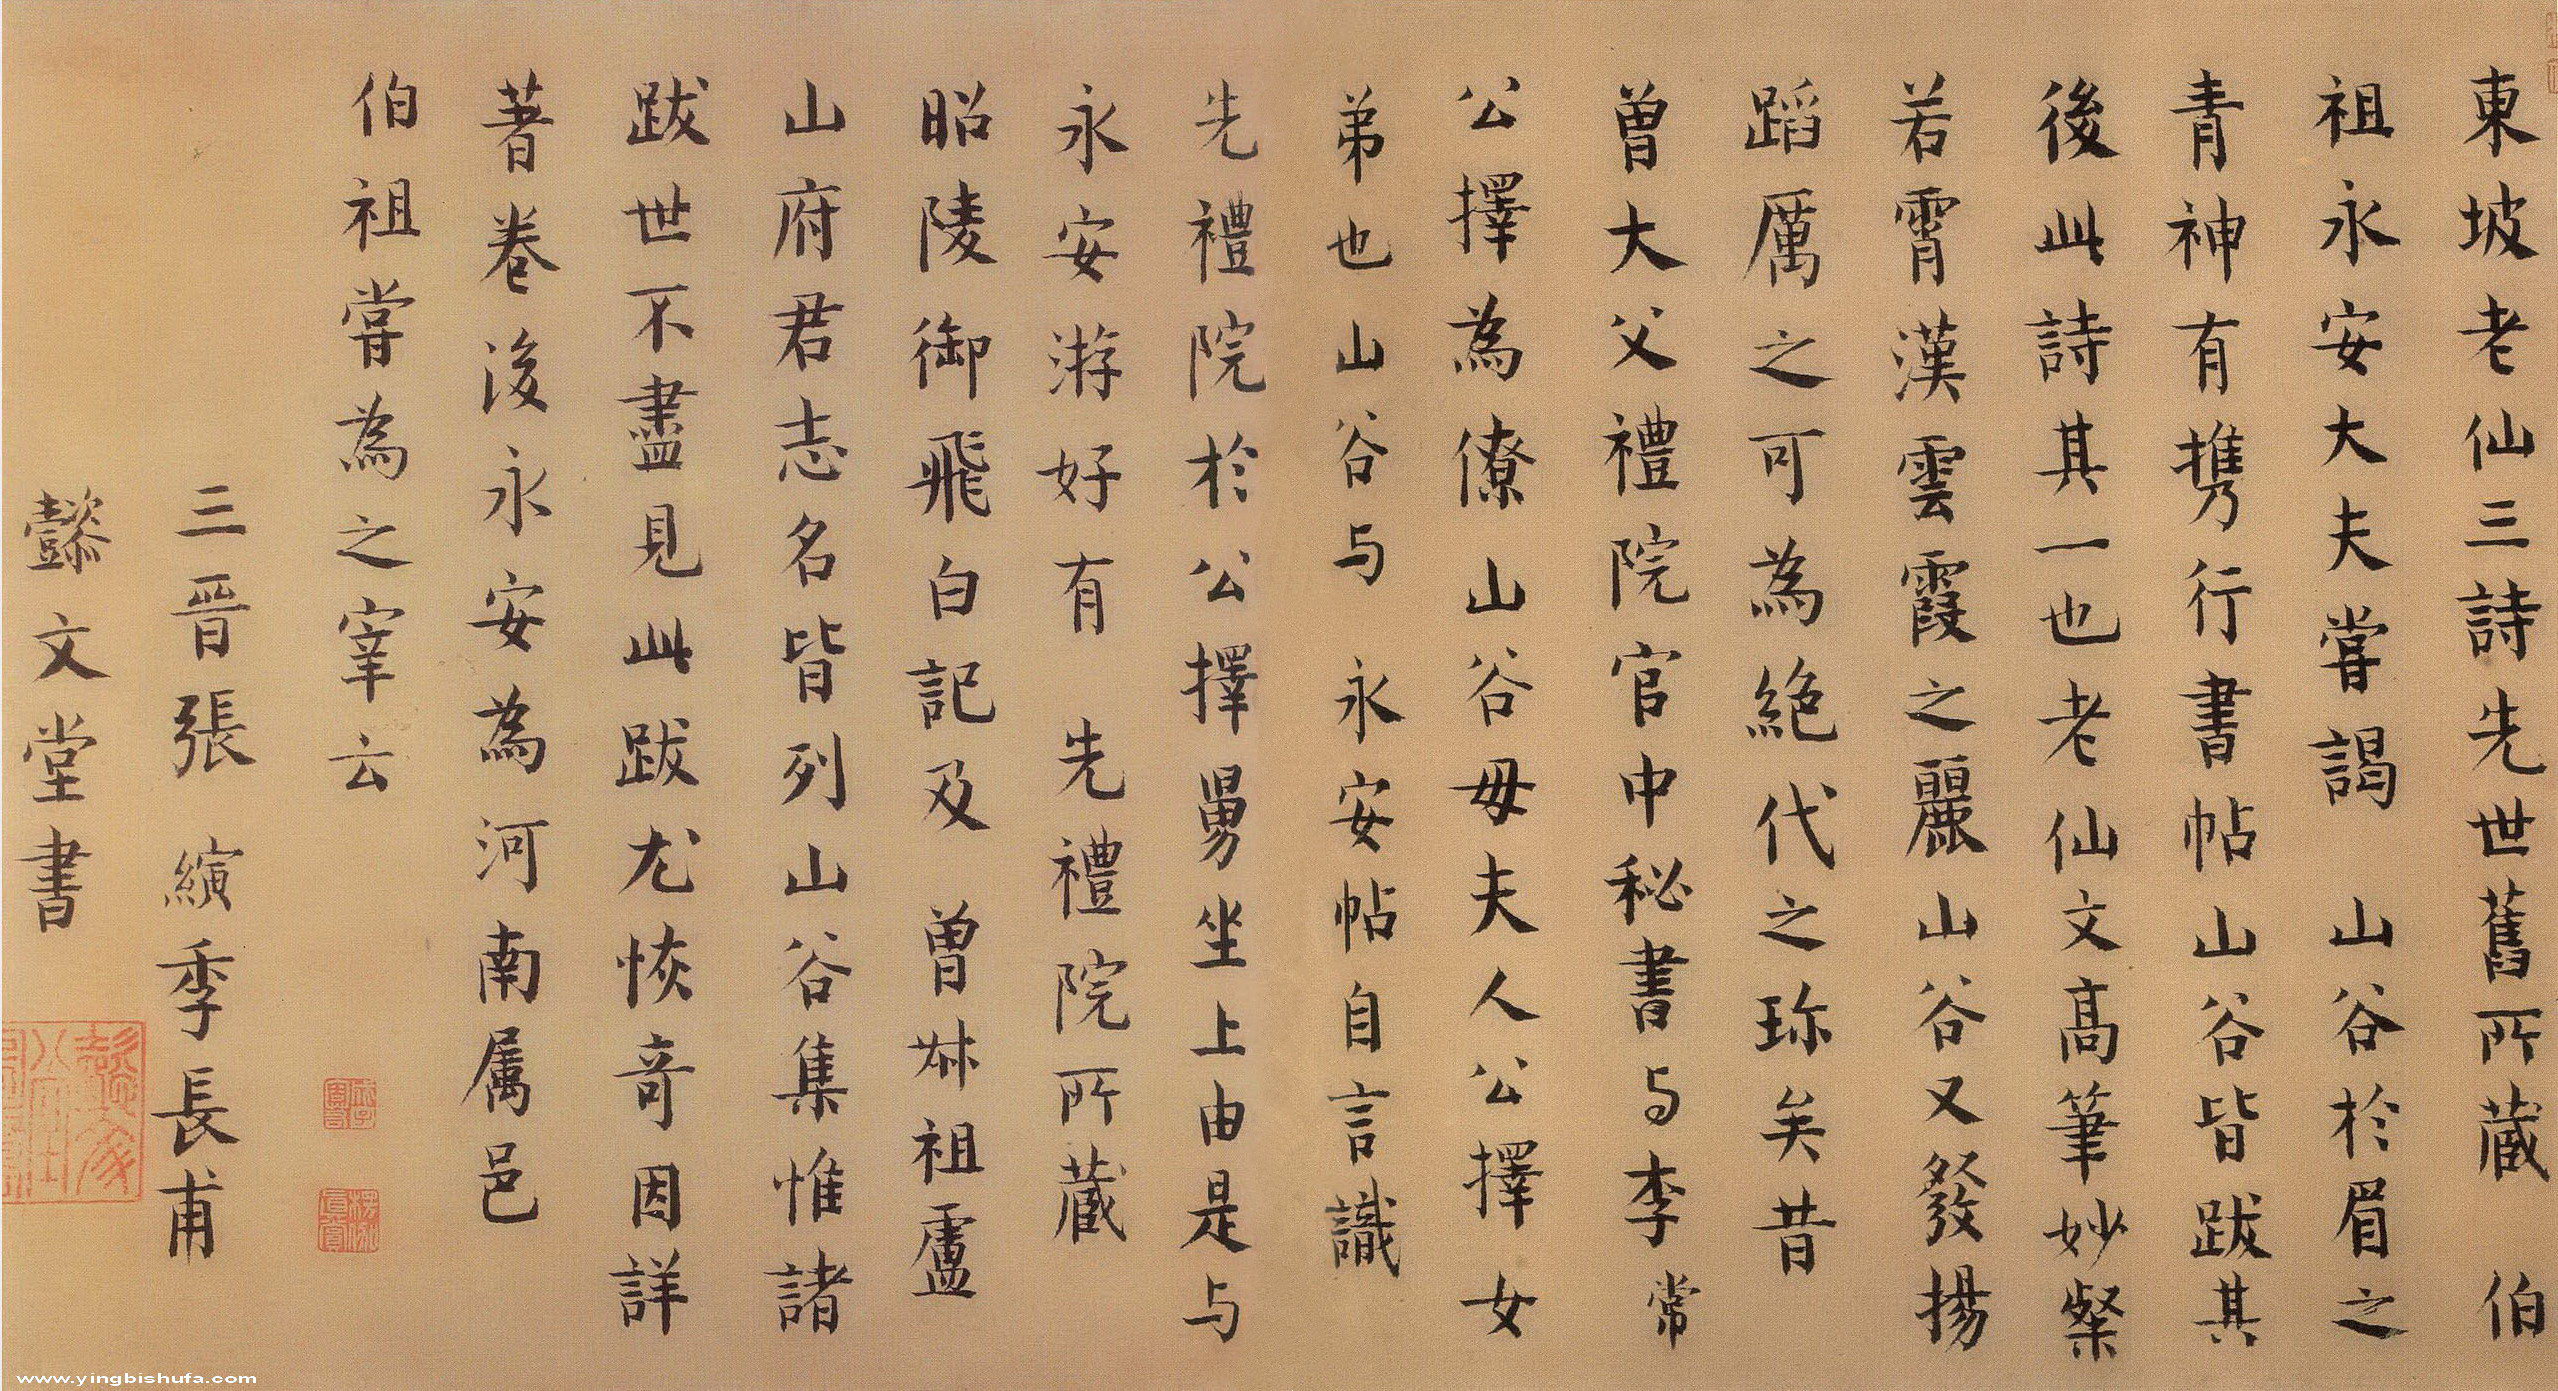 東坡老仙三詩先世舊所蔵 伯
祖永安大夫嘗謁 山谷於眉之
青神有攜行書帖山谷皆跋其
後此詩其一也老仙文高筆妙粲
若霄漢雲霞之麗山谷又發揚
蹈厲之可為絶代之珎矣昔
曾大父禮院官中秘書与李常
公擇為僚山谷母夫人公擇女
弟也山谷与 永安帖自言識
先禮院於公擇舅坐上由是与
永安游好有 先禮院所蔵
昭陵御飛白記及 曾叔祖盧
山府君志名皆列山谷集惟諸
跋世不盡見此跋尤恢奇因詳
著卷後永安為河南属邑
伯祖嘗為之宰云
三晉張 縯季長甫
懿文堂書
www.yingbishufa.com